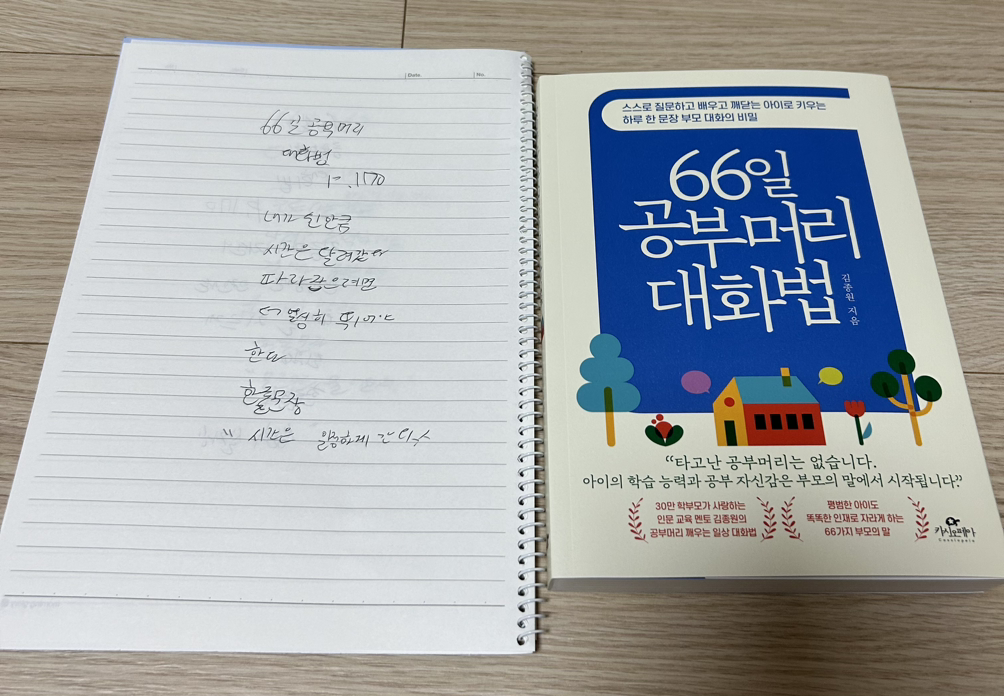 Date.
No.
66일 공부머리
대화법
P.170
네가 쉰만큼
시간은 달려갔다
따라잡으려면
열심히 뛰어야
한다
한줄문장
" 시간은
스스로 질문하고 배우고 깨닫는 아이로 키우는
하루 한 문장 부모 대화의 비밀
66일
공부머리
대화법
김종원 지음
“타고난 공부머리는 없습니다.
아이의 학습 능력과 공부 자신감은 부모의 말에서 시작됩니다.”
30만 학부모가 사랑하는
인문 교육 멘토 김종원의
공부머리 깨우는 일상 대화법
평범한 아이도
똑똑한 인재로 자라게 하는
66가지 부모의 말
카시오페아
Cassiopeia